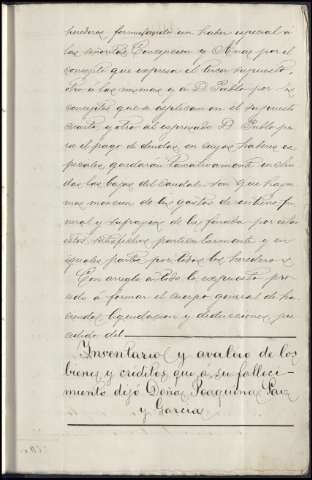 herederos formulando un haber especial á
las señoritas Concepcion y Ana por el
concepto que expresa el tercer supuesto,
otro á las mismas y á D. Pablo por los
conceptos que se esplican en el supuesto
cuarto y otro al espresado D. Pablo pa-
ra el pago de deudas, en cuyos haberes es-
peciales quedarán taxativamente inclui-
das las bajas del caudal sin que haya
mas mencion de los gastos de entierro fu-
neral y sufragios de la finada por estar
estos satisfechos particularmente y en
iguales partes por todos los herederos.
Con arreglo á todo lo expuesto pro-
cedo á formar el cuerpo general de ha-
cienda, liquidacion y deducciones, pre-
cedido del
Inventario y avaluo de los
bienes y créditos que á su falleci-
miento dejó Doña Joaquina Saiz
y Garcia